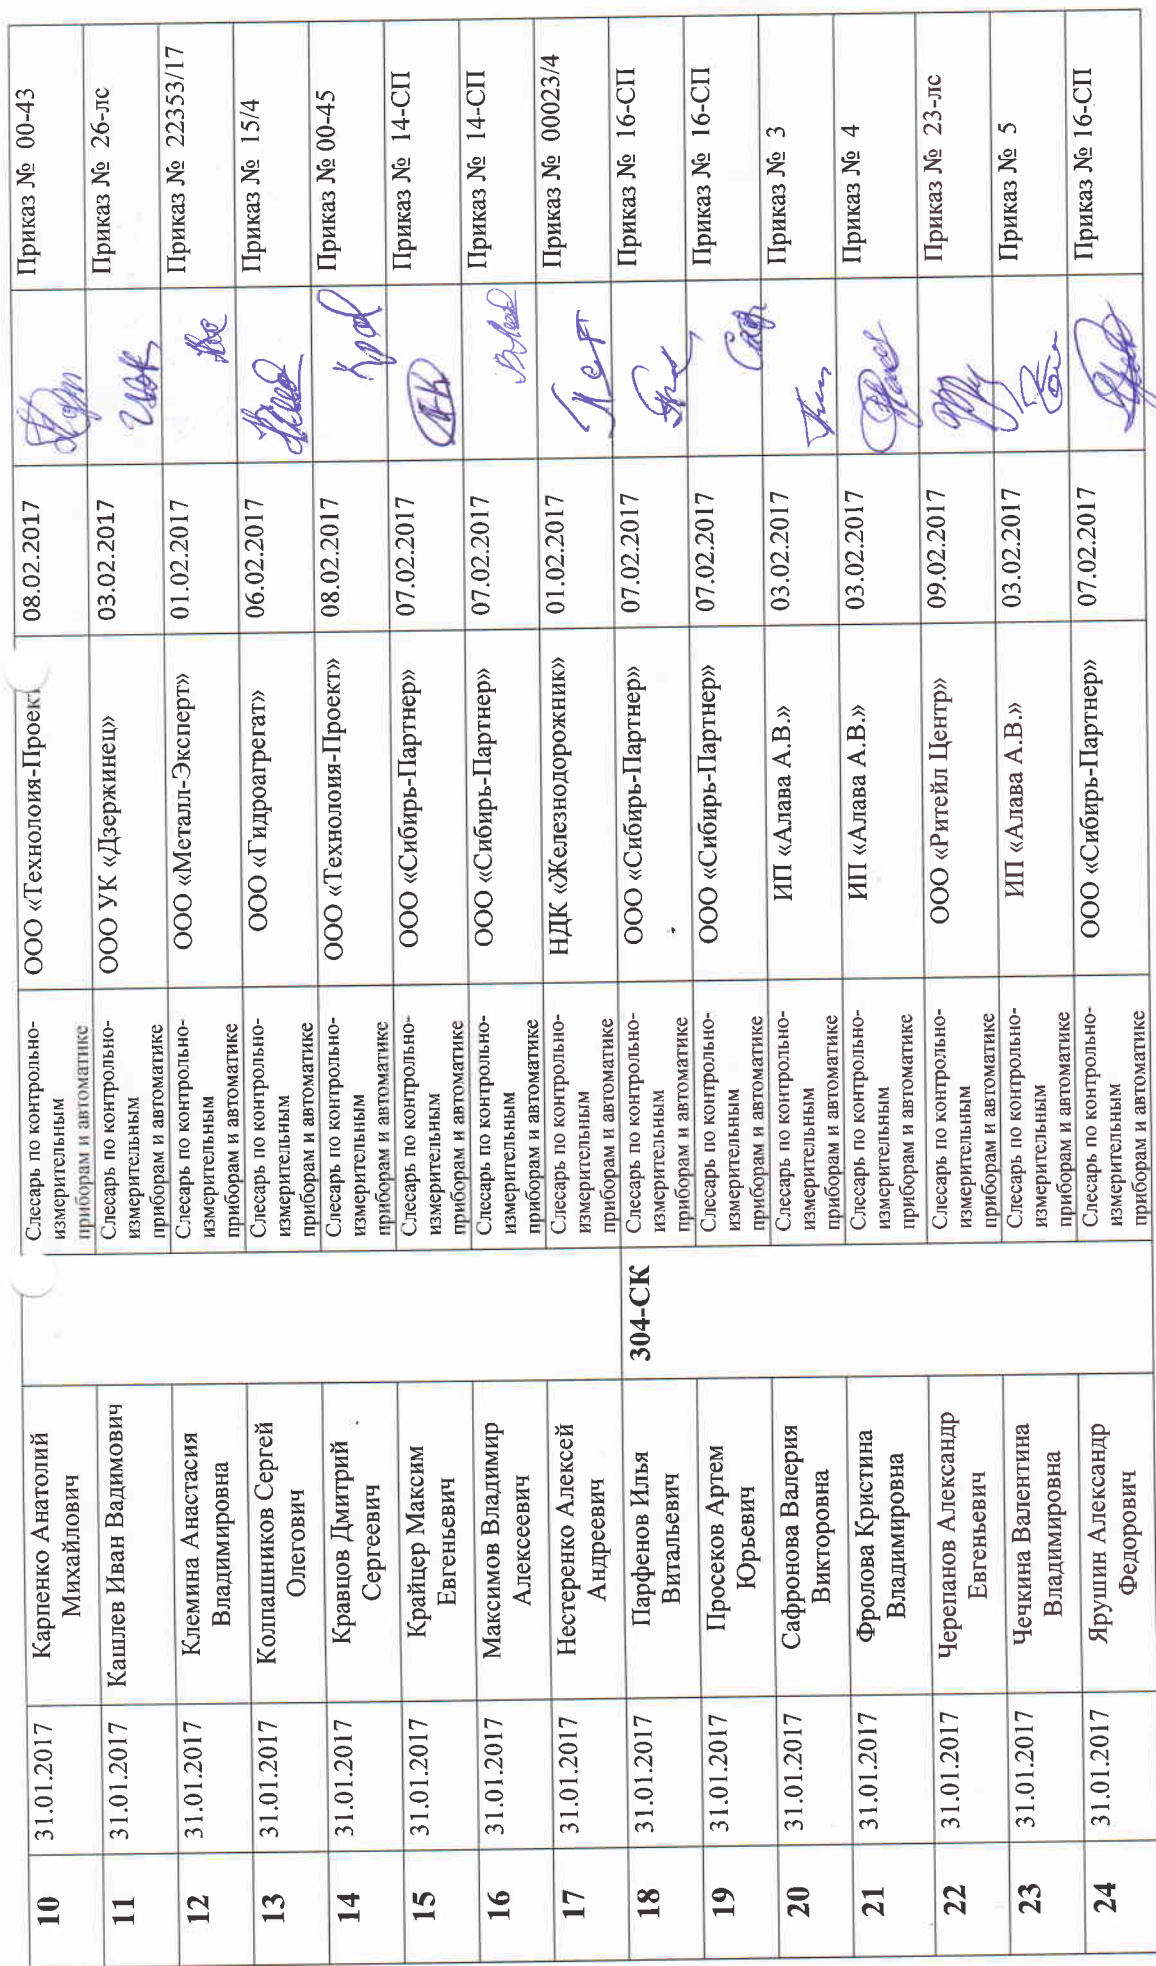 10
31.01.2017
Карпенко Анатолий
Михайлович
Слесарь по контрольно-
измерительным
приборам и автоматике
ООО «Технолоия-Проект
08.02.2017
Приказ № 00-43
11
31.01.2017
Кашлев Иван Вадимович
Слесарь по контрольно-
измерительным
приборам и автоматике
ООО УК «Дзержинец»
03.02.2017
Приказ № 26-лс
12
31.01.2017
Клемина Анастасия
Владимировна
Слесарь по контрольно-
измерительным
приборам и автоматике
ООО «Металл-Эксперт»
01.02.2017
Приказ № 22353/17
13
31.01.2017
Колпашников Сергей
Олегович
Слесарь по контрольно-
измерительным
приборам и автоматике
ООО «Гидроагрегат»
06.02.2017
Приказ № 15/4
14
31.01.2017
Кравцов Дмитрий
Сергеевич
Слесарь по контрольно-
измерительным
приборам и автоматике
ООО «Технолоия-Проект»
08.02.2017
Приказ № 00-45
15
31.01.2017
Крайцер Максим
Евгеньевич
Слесарь по контрольно-
измерительным
приборам и автоматике
ООО «Сибирь-Партнер»
07.02.2017
Приказ № 14-СП
16
31.01.2017
Максимов Владимир
Алексеевич
Слесарь по контрольно-
измерительным
приборам и автоматике
ООО «Сибирь-Партнер»
07.02.2017
Приказ № 14-СП
17
31.01.2017
Нестеренко Алексей
Андреевич
Слесарь по контрольно-
измерительным
приборам и автоматике
НДК «Железнодорожник»
01.02.2017
Приказ № 00023/4
18
31.01.2017
Парфенов Илья
Витальевич
304-СК
Слесарь по контрольно-
измерительным
приборам и автоматике
ООО «Сибирь-Партнер»
07.02.2017
Приказ № 16-СП
19
31.01.2017
Просеков Артем
Юрьевич
Слесарь по контрольно-
измерительным
приборам и автоматике
ООО «Сибирь-Партнер»
07.02.2017
Приказ № 16-СП
20
31.01.2017
Сафронова Валерия
Викторовна
Слесарь по контрольно-
измерительным
приборам и автоматике
ИП «Алава А.В.»
03.02.2017
Приказ № 3
21
31.01.2017
Фролова Кристина
Владимировна
Слесарь по контрольно-
измерительным
приборам и автоматике
ИП «Алава А.В.»
03.02.2017
Приказ № 4
22
31.01.2017
Черепанов Александр
Евгеньевич
Слесарь по контрольно-
измерительным
приборам и автоматике
ООО «Ритейл Центр»
09.02.2017
Приказ № 23-лс
23
31.01.2017
Чечкина Валентина
Владимировна
Слесарь по контрольно-
измерительным
приборам и автоматике
ИП «Алава А.В.»
03.02.2017
Приказ № 5
24
31.01.2017
Ярушин Александр
Федорович
Слесарь по контрольно-
измерительным
приборам и автоматике
ООО «Сибирь-Партнер»
07.02.2017
Приказ № 16-СП